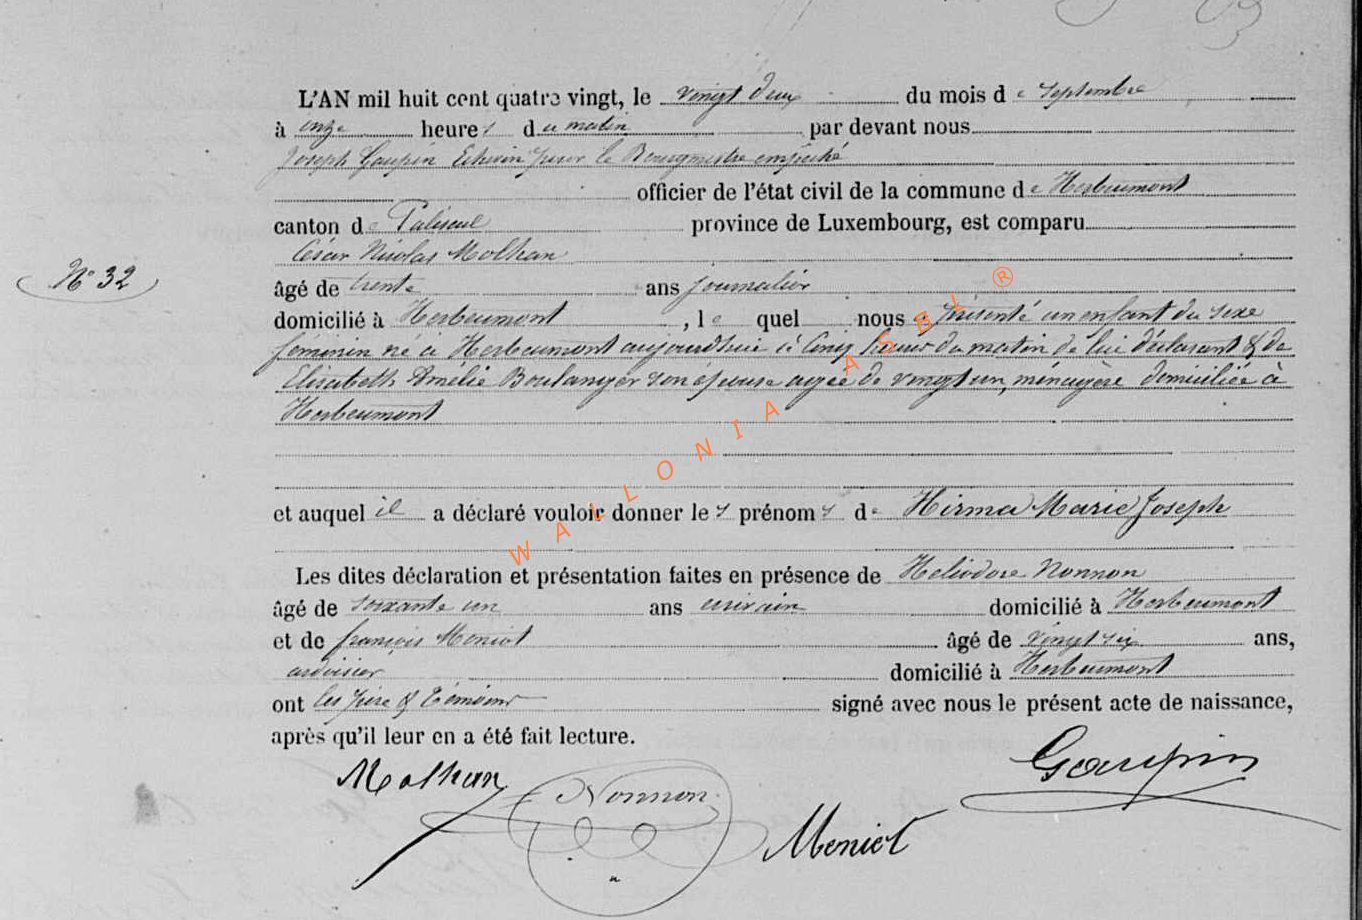 L'AN mil huit cent quatre vingt, le vingt deux du mois de septembre
à onze heures du matin par devant nous
Joseph Gaupin Echevin pour le Bourgmestre empêché
officier de l'état civil de la commune de Herbeumont
canton de Paliseul province de Luxembourg, est comparu
César Nicolas Molhan
N° 32
âgé de trente ans journalier
domicilié à Herbeumont, lequel nous a présenté un enfant du sexe
féminin né à Herbeumont aujourdhui à cinq heures du matin de lui déclarant & de
Elisabeth Amélie Boulanger son épouse agée de vingt un, ménagère domiciliée à
Herbeumont
et auquel il a déclaré vouloir donner les prénoms de Hirma Marie Joseph
Les dites déclaration et présentation faites en présence de Héliodore Nonnon
âgé de soixante un ans domicilié à Herbeumont
et de françois Meniot âgé de vingt six ans,
ardoisier domicilié à Herbeumont
ont les père & témoins signé avec nous le présent acte de naissance,
après qu'il leur en a été fait lecture.
Molhan Nonnon Meniot Gaupin
WALLONIA ASBL ®